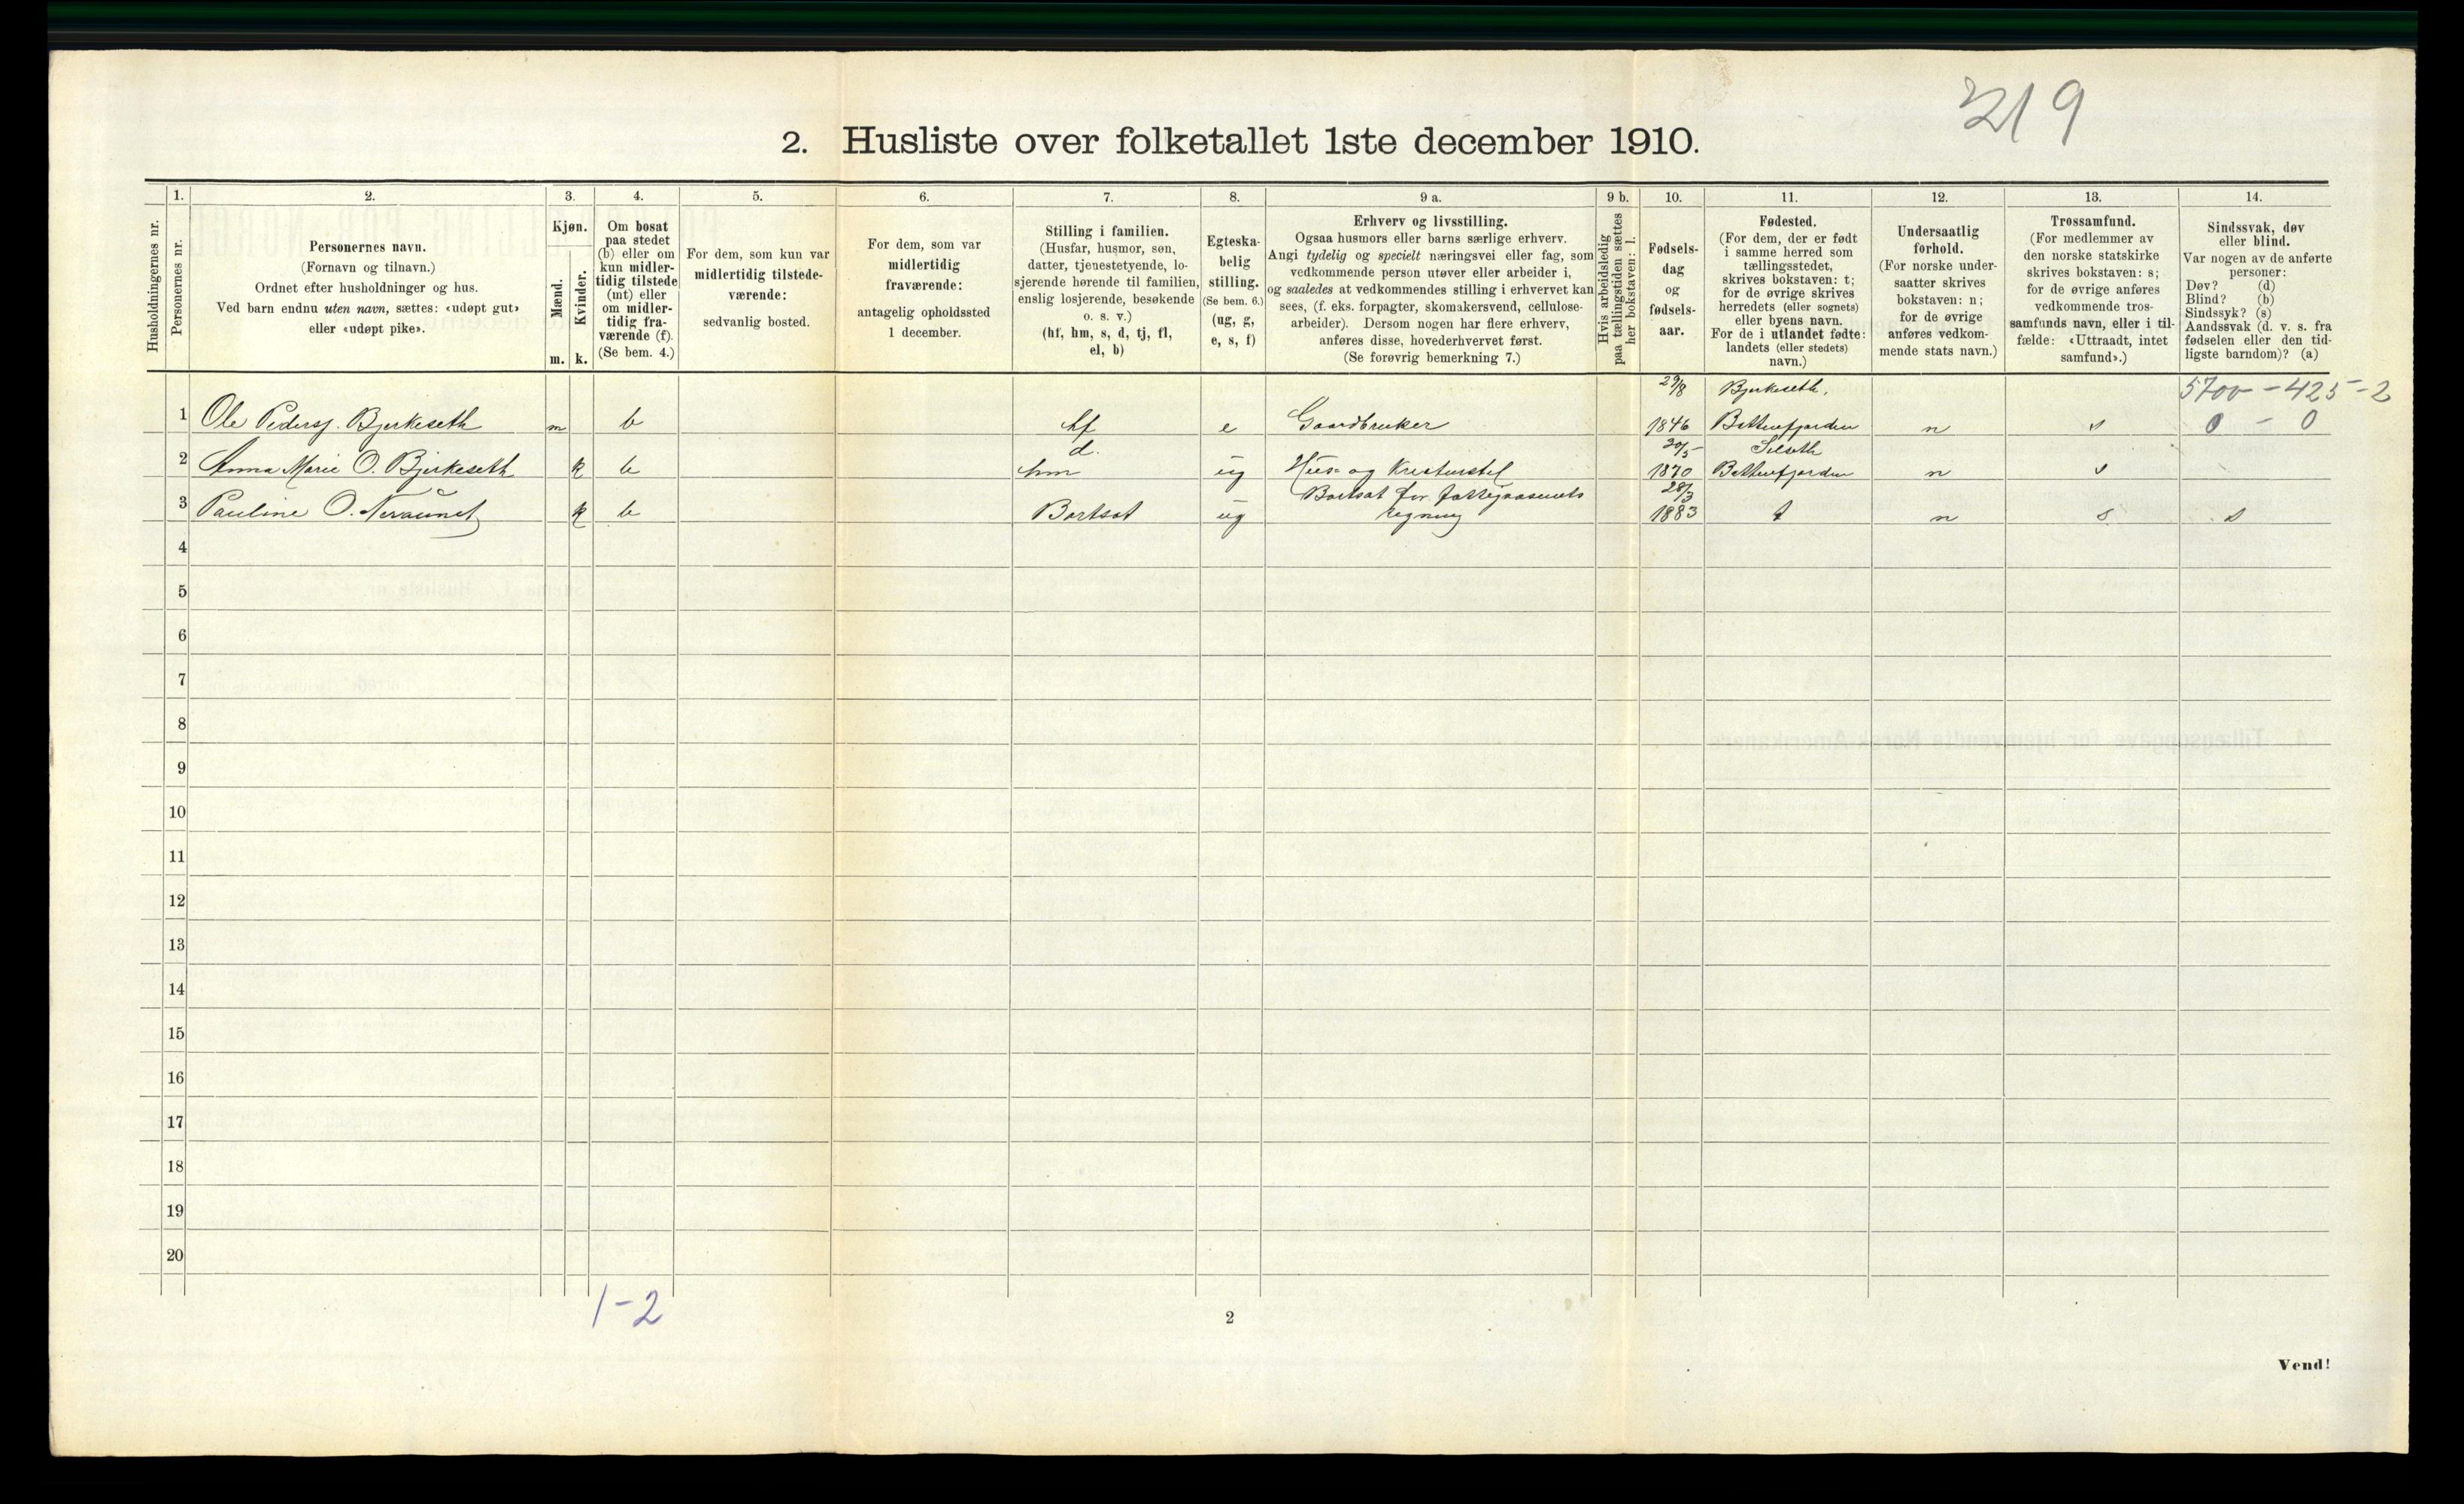 219
2. Husliste over folketallet 1ste december 1910.
1. 2. 3. 4. 5. 6. 7. 8. 9 a. 9 b. 10. 11. 12. 13. 14.
Husholdningernes nr.
Personernes nr.
Personernes navn.
(Fornavn og tilnavn.)
Ordnet efter husholdninger og hus.
Ved barn endnu uten navn, sættes: «udøpt gut»
eller «udøpt pike».
Kjøn.
Mænd.
Kvinder.
m. k.
Om bosat
paa stedet
(b) eller om
kun midler-
tidig tilstede
(mt) eller
om midler-
tidig fra-
værende (f).
(Se bem. 4.)
For dem, som kun var
midlertidig tilstede-
værende:
sedvanlig bosted.
For dem, som var
midlertidig
fraværende:
antagelig opholdssted
1 december.
Stilling i familien.
(Husfar, husmor, søn,
datter, tjenestetyende, lo-
sjerende hørende til familien,
enslig losjerende, besøkende
o. s. v.)
(hf, hm, s, d, tj, fl,
el, b)
Egteska-
belig
stilling.
(Se bem. 6.)
(ug, g,
e, s, f)
Erhverv og livsstilling.
Ogsaa husmors eller barns særlige erhverv.
Angi tydelig og specielt næringsvei eller fag, som
vedkommende person utøver eller arbeider i,
og saaledes at vedkommendes stilling i erhvervet kan
sees, (f. eks. forpagter, skomakersvend, cellulose-
arbeider). Dersom nogen har flere erhverv,
anføres disse, hovederhvervet først.
(Se forøvrig bemerkning 7.)
Hvis arbeidsledig
paa tællingstiden sættes
her bokstaven: l.
Fødsels-
dag
og
fødsels-
aar.
Fødested.
(For dem, der er født
i samme herred som
tællingsstedet,
skrives bokstaven: t;
for de øvrige skrives
herredets (eller sognets)
eller byens navn.
For de i utlandet fødte:
landets (eller stedets)
navn.)
Undersaatlig
forhold.
(For norske under-
saatter skrives
bokstaven: n;
for de øvrige
anføres vedkom-
mende stats navn.)
Trossamfund.
(For medlemmer av
den norske statskirke
skrives bokstaven: s;
for de øvrige anføres
vedkommende tros-
samfunds navn, eller i til-
fælde: «Uttraadt, intet
samfund».)
Sindssvak, døv
eller blind.
Var nogen av de anførte
personer:
Døv? (d)
Blind? (b)
Sindssyk? (s)
Aandssvak (d. v. s. fra
fødselen eller den tid-
ligste barndom)? (a)
29/8 Bjerkeseth, 5700 - 425 - 2
1 Ole Peders. Bjerkeseth m b hf e Gaardbruker 1846 Battenfjorden n s 0 - 0
d. 30/5 Silseth
2 Anna Marie O. Bjerkeseth k b hm ug Hus og Kreaturstel 1870 Battenfjorden n s
Bortsat for fattigvæsenets 28/3
3 Pauline O. Neraunet k b Bortsat ug regning 1883 t n s s
4
5
6
7
8
9
10
11
12
13
14
15
16
17
18
19
20
1-2
2
Vend!